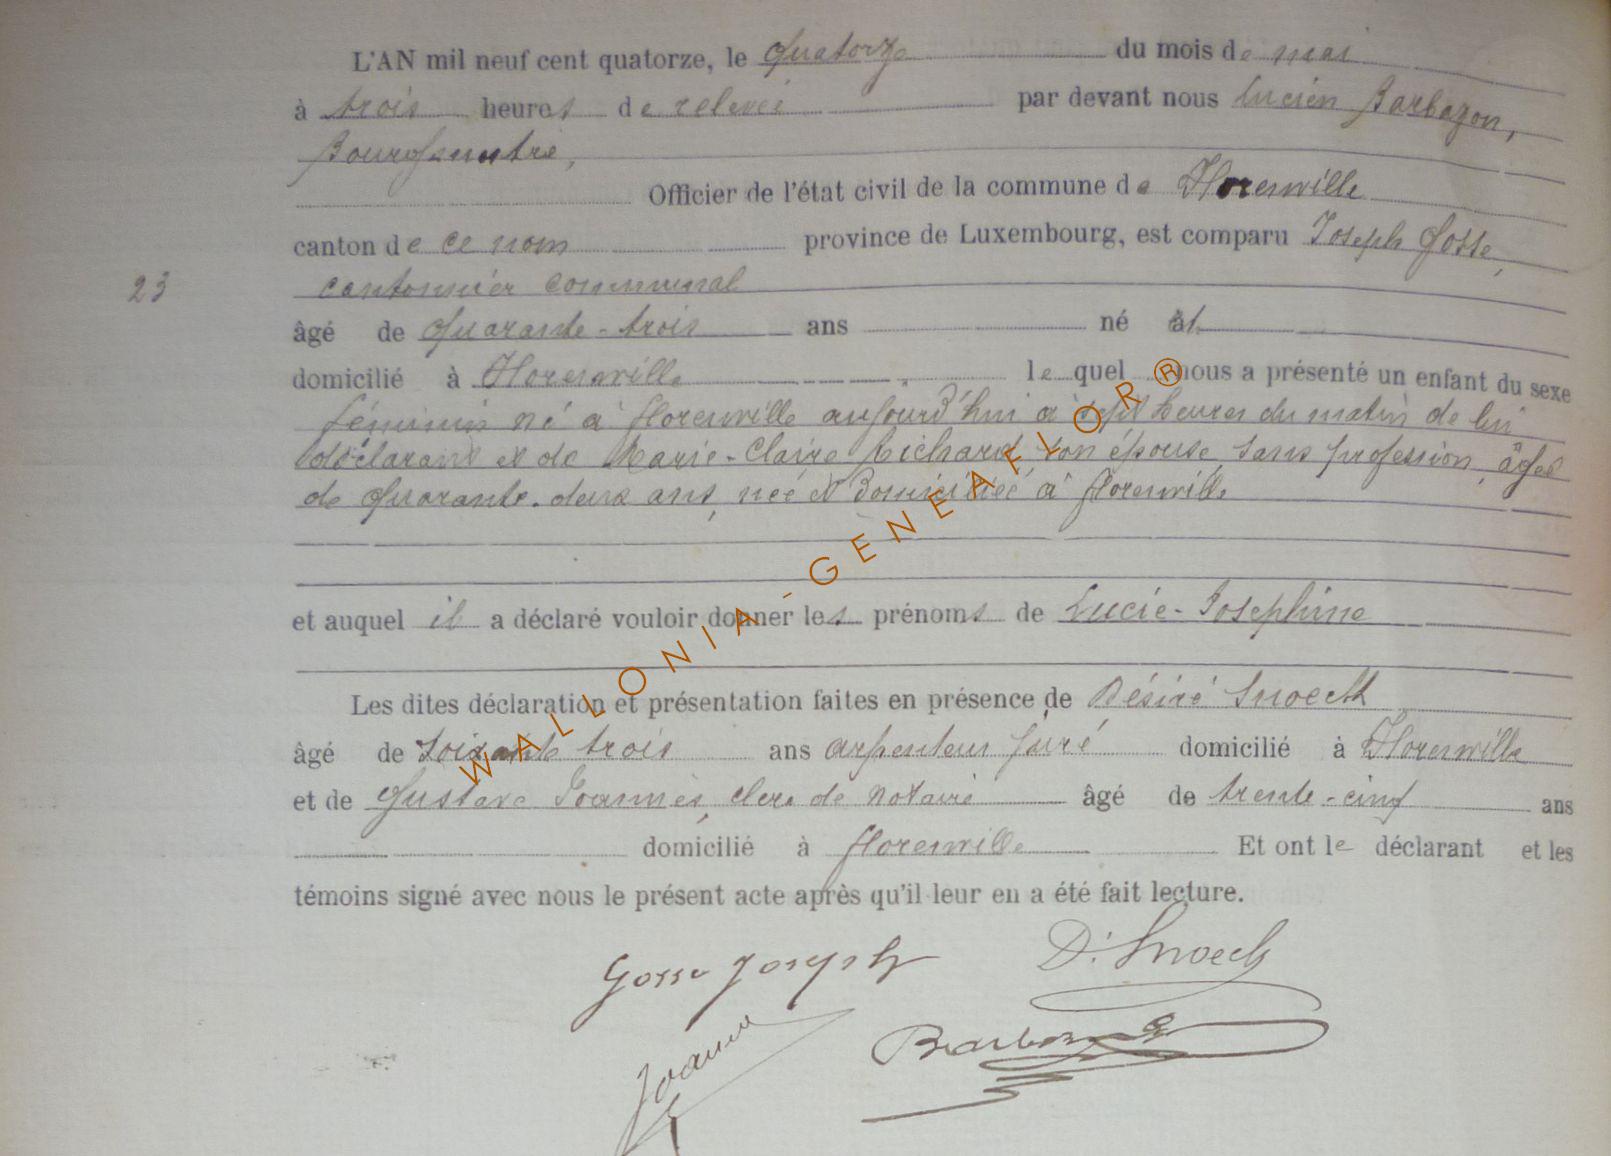 L'AN mil neuf cent quatorze, le quatorze du mois de mai
à trois heures de relevée par devant nous Lucien Barbazon,
Bourgmestre,
Officier de l'état civil de la commune de Florenville
canton de ce nom province de Luxembourg, est comparu Joseph Gosse,
23 cantonnier communal
âgé de quarante-trois ans né et
domicilié à Florenville lequel nous a présenté un enfant du sexe
féminin né à Florenville aujourd'hui à sept heures du matin de lui
déclarant et de Marie-Claire Richard, son épouse, sans profession, âgée
de quarante-deux ans, née et domiciliée à Florenville
et auquel il a déclaré vouloir donner les prénoms de Lucie-Joséphine
Les dites déclaration et présentation faites en présence de Désiré Snoeck
âgé de soixante trois ans arpenteur juré domicilié à Florenville
et de Gustave Joannès, clerc de notaire âgé de trente-cinq ans
domicilié à Florenville Et ont le déclarant et les
témoins signé avec nous le présent acte après qu'il leur en a été fait lecture.
Gosse Joseph D. Snoeck
Joannès Barbazon
WALLONIA-GENEAFLOR®